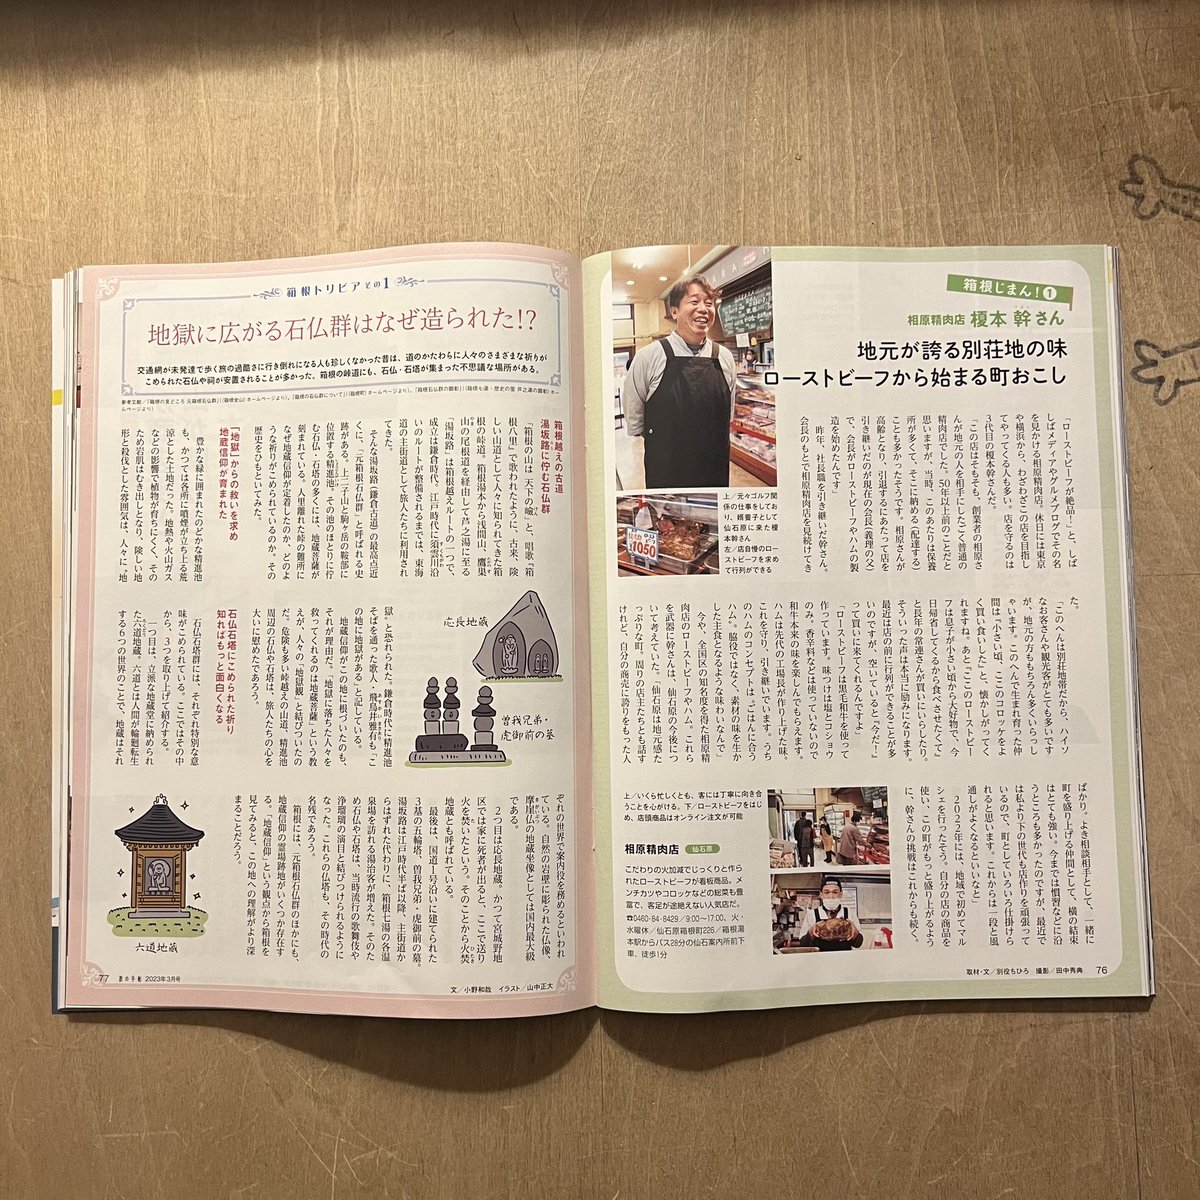 箱根じまん!①
相原精肉店 榎本 幹さん
地元が誇る別荘地の味
ローストビーフから始まる町おこし
「ローストビーフが絶品!」と、しば
しばメディアやグルメブログでその名
を見かける相原精肉店。休日には東京
や横浜から、わざわざこの店を目指し
てやってくる人も多い。店を守るのは
3代目の榎本幹さんだ。
「この店はそもそも、創業者の相原さ
んが地元の人を相手にしたごく普通の
精肉店でした。50年以上前のことだと
思いますが、当時、このあたりは保養
所が多くて、そこに納める(配達する)
ことも多かったそうです。相原さんが
高齢となり、引退するにあたって店を
引き継いだが現在の会長(義理の父)
で、会長がローストビーフやハムの製
造を始めたんです」
昨年、社長職を引き継いだ幹さん。
会長のもとで相原精肉店を見続けてき
上/元々ゴルフ関
係の仕事をしてお
り、婿養子として
仙石原に来た榎
本幹さん
左/店自慢のロー
ストビーフを求め
て行列ができる
1050
た。
「このへんは別荘地帯だから、ハイソ
なお客さんや観光客がとても多いです
が、地元の方ももちろん多くいらっし
ゃいます。このへんで生まれ育った仲
間は『小さい頃、ここのコロッケをよ
く買い食いした』と、懐かしがってく
れますね。あとこのローストビー
フは息子が小さい頃から大好物で、今
日帰省してくるから食べさせたくて』
と長年の常連さんが買いにいらしたり。
そういった声は本当に励みになります。
最近は店の前に行列ができることが多
いのですが、空いていると『今だ!』
って買いに来てくれるんですよ」
「ローストビーフは黒毛和牛を使って
作っています。味つけは塩とコショウ
のみ。香辛料などは使っていないので
和牛本来の味を楽しんでもらえます。
ハムは先代の工場長が作り上げた味。
これを守り、引き継いでいます。うち
のハムのコンセプトは、『ごはんに合う
ハム。脇役ではなく、素材の味を生か
した主食となるような味わいなんです』
今や、全国区の知名度を得た相原精
肉店のローストビーフやハム。これら
を武器に幹さんは、仙石原の今後につ
いて考えていた。「仙石原は地元感た
っぷりな町。周りの店主たちとも話す
けれど、自分の商売に誇りをもった人
ばかり。よき相談相手として、一緒に
町を盛り上げる仲間として、横の結束
はとても強い。今までは慣習などに沿
うところも多かったのですが、最近で
は私より下の世代も店作りを頑張って
いるので、町としていろいろ仕掛けら
れると思います。これからは一段と風
通しがよくなるといいな」
2022年には、地域で初めてマル
シェを行ったそう。自分の店の商品を
使い、この町がもっと盛り上がるよう
に、幹さんの挑戦はこれからも続く。
上/いくら忙しくとも、客には丁寧に向き合
うことを心がける。下/ローストビーフをはじ
め、店頭商品はオンライン注文が可能
相原精肉店 仙石原
こだわりの火加減でじっくりと作ら
れたローストビーフが看板商品。メ
ンチカツやコロッケなどの総菜も豊
富で、客足が途絶えない人気店だ。
☎0460-84-8429/9:00~17:00、火・
水曜休/仙石原箱根町226/箱根湯
本駅からバス28分の仙石案内所前下
車、徒歩1分
取材・文/別役ちひろ 撮影/田中秀典 76
箱根トリビア その1
地獄に広がる石仏群はなぜ造られた!?
交通網が未発達で歩く旅の過酷さに行き倒れになる人も珍しくなかった昔は、道のかたわらに人々のさまざまな祈りが
こめられた石仏や祠が安置されることが多かった。箱根の峠道にも、石仏・石塔が集まった不思議な場所がある。
箱根越えの古道
湯坂路に佇む石仏群
「箱根の山は天下の嶮」と、唱歌『箱
根八里』で歌われたように、古来、険
しい山道として人々に知られてきた箱
根の峠道。箱根湯本から浅間山、鷹巣
山の尾根道を経由して芦之湯に至る
「湯坂路」は箱根越えルートの一つで、
成立は鎌倉時代。江戸時代に須雲川沿
いのルートが整備されるまでは、東海
道の主街道として旅人たちに利用され
てきた。
そんな湯坂路(鎌倉古道)の最高点近
くに、「元箱根石仏群」と呼ばれる史
跡がある。上二子山と駒ヶ岳の鞍部に
位置する精進池。その池のほとりに佇
む石仏・石塔の多くには、地蔵菩薩が
刻まれている。人里離れた峠の難所に
なぜ地蔵信仰が定着したのか、どのよ
うな祈りがこめられているのか。その
歴史をひもといてみた。
「地獄」からの救いを求め
地蔵信仰が育まれた
豊かな緑に囲まれたのどかな精進池
も、かつては各所に噴煙が立ち上る荒
涼とした土地だった。地熱や火山ガス
などの影響で植物が育ちにくく、その
ため岩肌はむき出しとなり、険しい地
形と殺伐とした雰囲気は、人々に「地
獄」と恐れられた。鎌倉時代に精進池
そばを通った歌人・飛鳥井雅有も「こ
の地に地獄がある」と記している。
地蔵信仰がこの地に根づいたのも、
それが理由だ。「地獄に落ちた人々を
救ってくれるのは地蔵菩薩」という教
えが、人々の「地獄観」と結びついたの
だ。危険も多い峠越えの山道、精進池
周辺の石仏や石塔は、旅人たちの心を
大いに慰めたであろう。
石仏石塔にこめられた祈り
知ればもっと面白くなる
石仏石塔群には、それぞれ特別な意
味がこめられている。ここではその中
から、3つを取り上げて紹介する。
一つ目は、立派な地蔵堂に納められ
た六道地蔵。六道とは人間が輪廻転生
する6つの世界のことで、地蔵はそれ
応長地蔵
曽我兄弟・
虎御前の墓
ぞれの世界で案内役を務めるといわれ
ている。自然の岩壁に彫られた仏像、
摩崖仏の地蔵坐像としては国内最大級
である。
2つ目は応長地蔵。かつて宮城野地
区では家に死者が出ると、ここで送り
火を焚いたという。そのことから火焚
地蔵とも呼ばれている。
最後は、国道1号沿いに建てられた
3基の五輪塔、曽我兄弟・虎御前の墓。
湯坂路は江戸時代半ば以降、主街道か
らはずれた代わりに、箱根七湯の各温
泉場を訪れる湯治客が増えた。そのた
め石仏や石塔は、当時流行の歌舞伎や
浄瑠璃の演目と結びつけられるように
なった。これらの仏塔も、その時代の
名残であろう。
箱根には、元箱根石仏群のほかにも、
地蔵信仰の霊場跡地がいくつか存在す
る。「地蔵信仰」という観点から箱根を
見てみると、この地への理解がより深
まることだろう。
六道地蔵
77 旅の手帖 2023年3月号
文/小野和哉 イラスト/山中正大